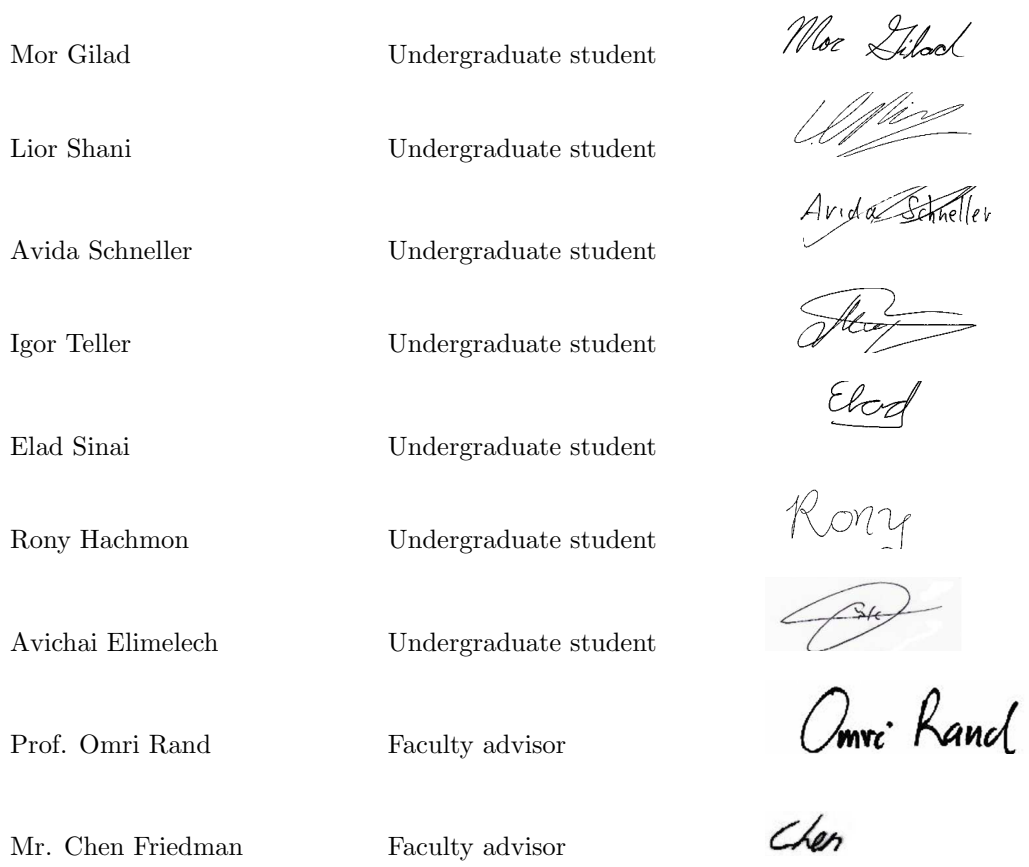 Mor Gilad Undergraduate student Mor Gilad
Lior Shani Undergraduate student
Avida Schneller Undergraduate student Avida Schneller
Igor Teller Undergraduate student
Elad Sinai Undergraduate student Elad
Rony Hachmon Undergraduate student Rony
Avichai Elimelech Undergraduate student
Prof. Omri Rand Faculty advisor Omri Rand
Mr. Chen Friedman Faculty advisor Chen